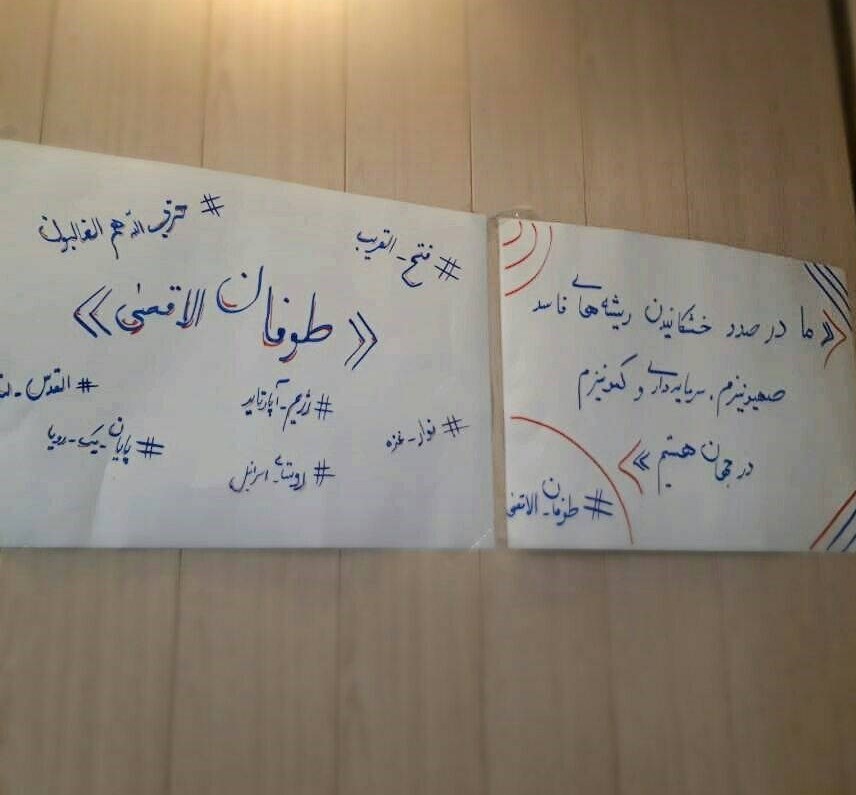 «ما در صدد خشکانیدن ریشه‌های فاسد
صهیونیزم، سرمایه‌داری و کمونیزم
در جهان هستیم»
#طوفان_الاقصی
#فتح_القریب
#حزب الله هم الغالبون
«طوفان الاقصی»
#رژیم_آپارتاید
#القدس_لنا
#نوار_غزه
#پایان_یک_رویا
اسرایل